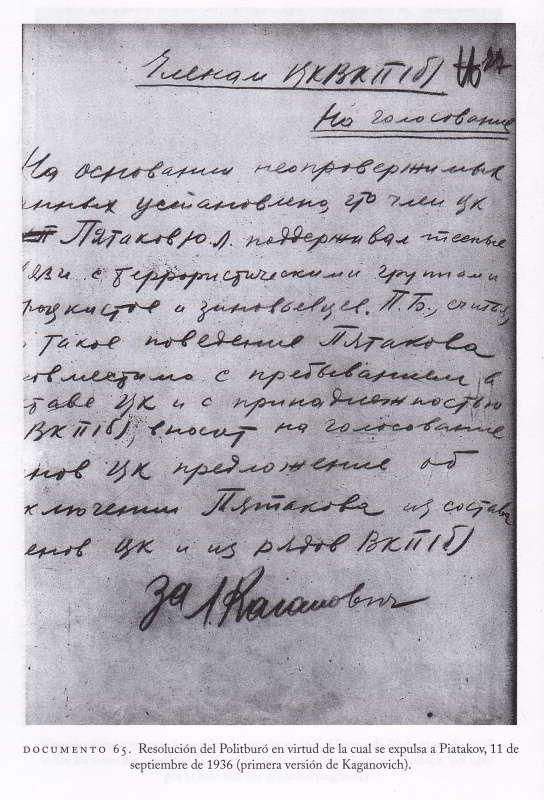 Членам ЦКВКП(б)
На голосование
На основании неопровержимых
нных установлено, что член ЦК
Пятаков Ю.Л. поддерживал тесные
язи с террористическими группами
роцкистов и зиновьевцев. П.Б., считая,
такое поведение Пятакова
овместимо с пребыванием в
таве ЦК и с принадлежностью
ВКП(б), вносит на голосование
нов ЦК предложение об
ключении Пятакова из состава
енов ЦК и из рядов ВКП(б)
За Л Каганович
DOCUMENTO 65. Resolución del Politburó en virtud de la cual se expulsa a Piatakov, 11 de
septiembre de 1936 (primera versión de Kaganovich).